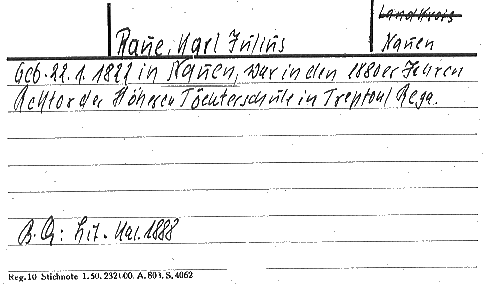 ~~Landkreis~~
Raue, Karl Julius
Nauen
Geb. 22. 1. 1821 in Nauen, war in den 1880er Jahren
Rektor der Höheren Töchterschule in Treptow/Rega.
B. Q: Lit. Kal. 1888
Reg. 10 Stichnote 1. 50. 2321/00. A. 803. S. 4062